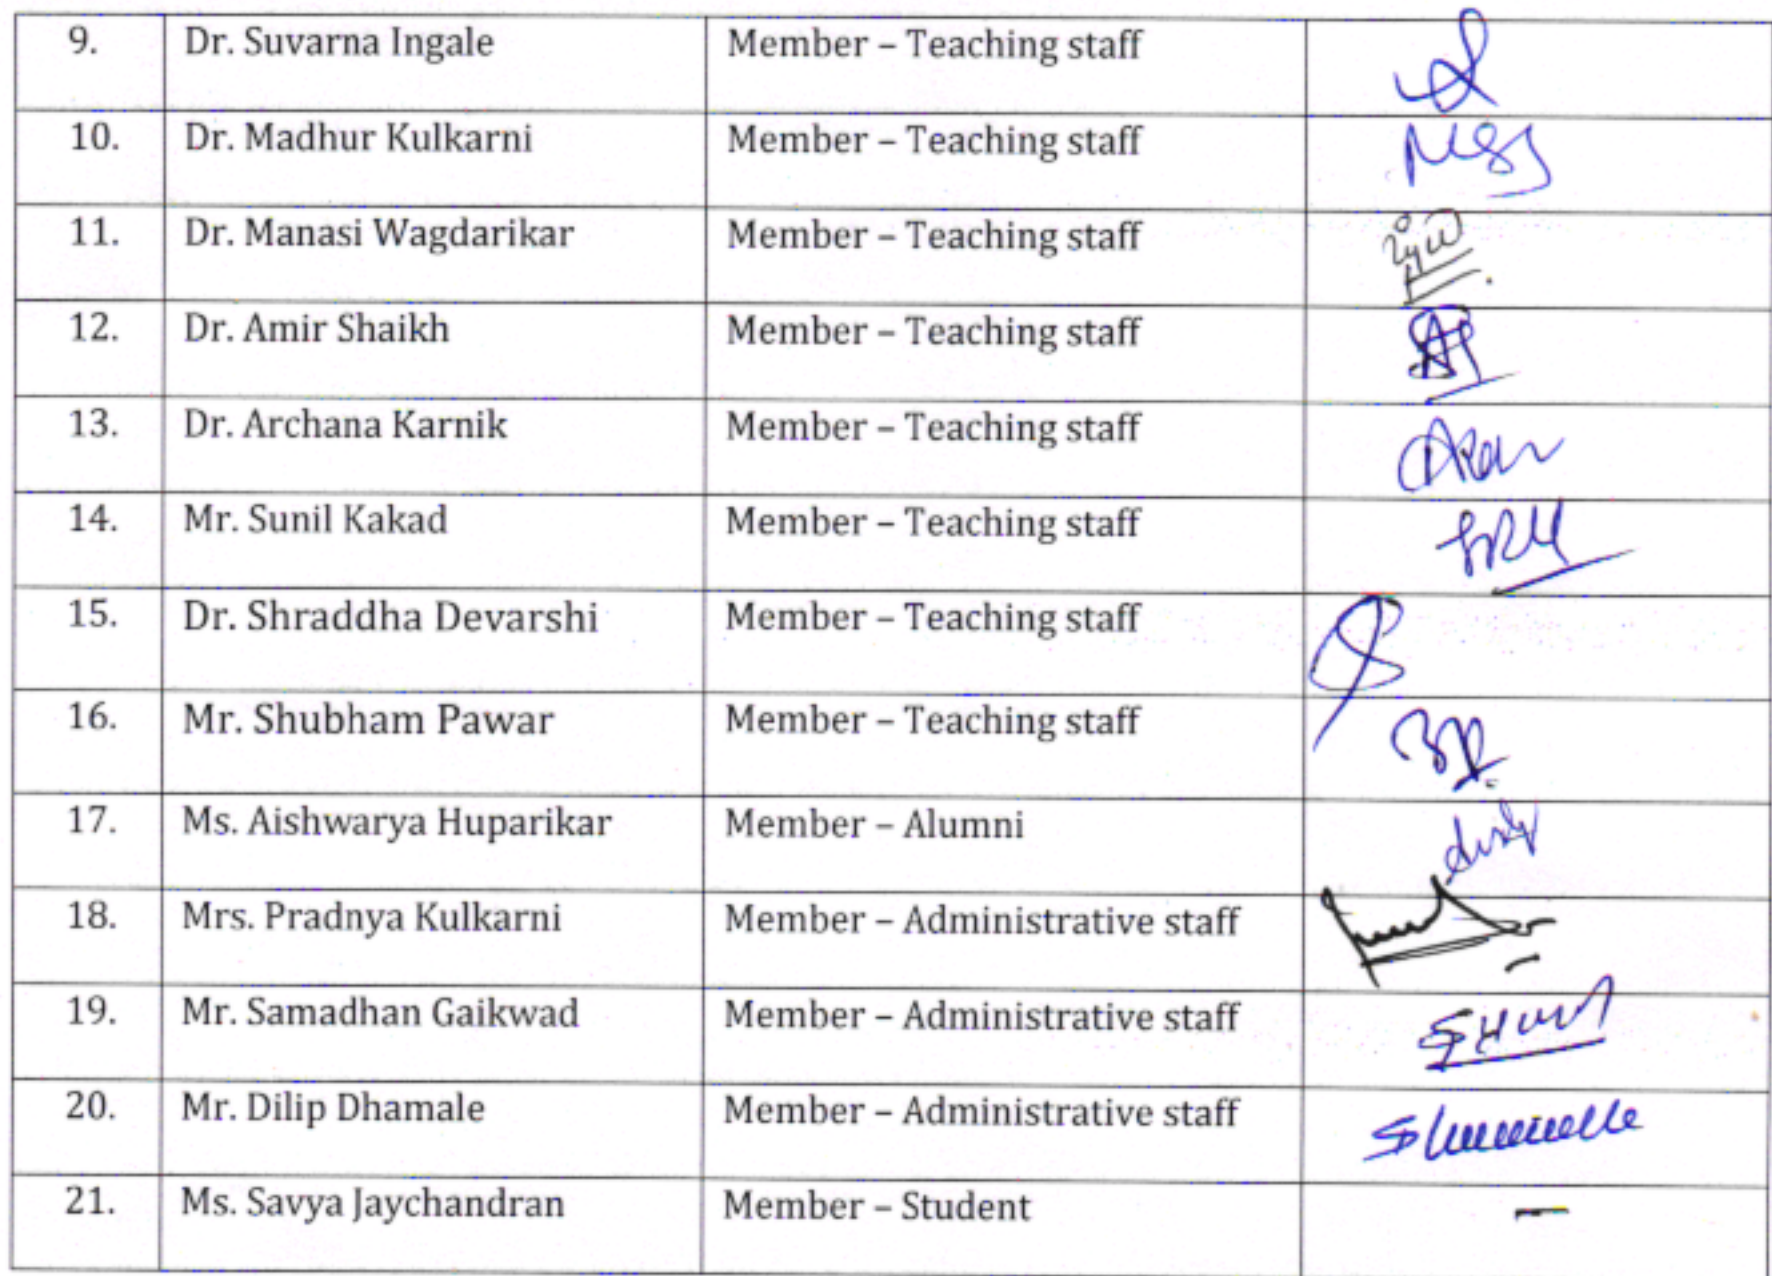 9. Dr. Suvarna Ingale Member – Teaching staff
10. Dr. Madhur Kulkarni Member – Teaching staff
11. Dr. Manasi Wagdarikar Member – Teaching staff
12. Dr. Amir Shaikh Member – Teaching staff
13. Dr. Archana Karnik Member – Teaching staff
14. Mr. Sunil Kakad Member – Teaching staff
15. Dr. Shraddha Devarshi Member – Teaching staff
16. Mr. Shubham Pawar Member – Teaching staff
17. Ms. Aishwarya Huparikar Member – Alumni
18. Mrs. Pradnya Kulkarni Member – Administrative staff
19. Mr. Samadhan Gaikwad Member – Administrative staff
20. Mr. Dilip Dhamale Member – Administrative staff
21. Ms. Savya Jaychandran Member – Student –